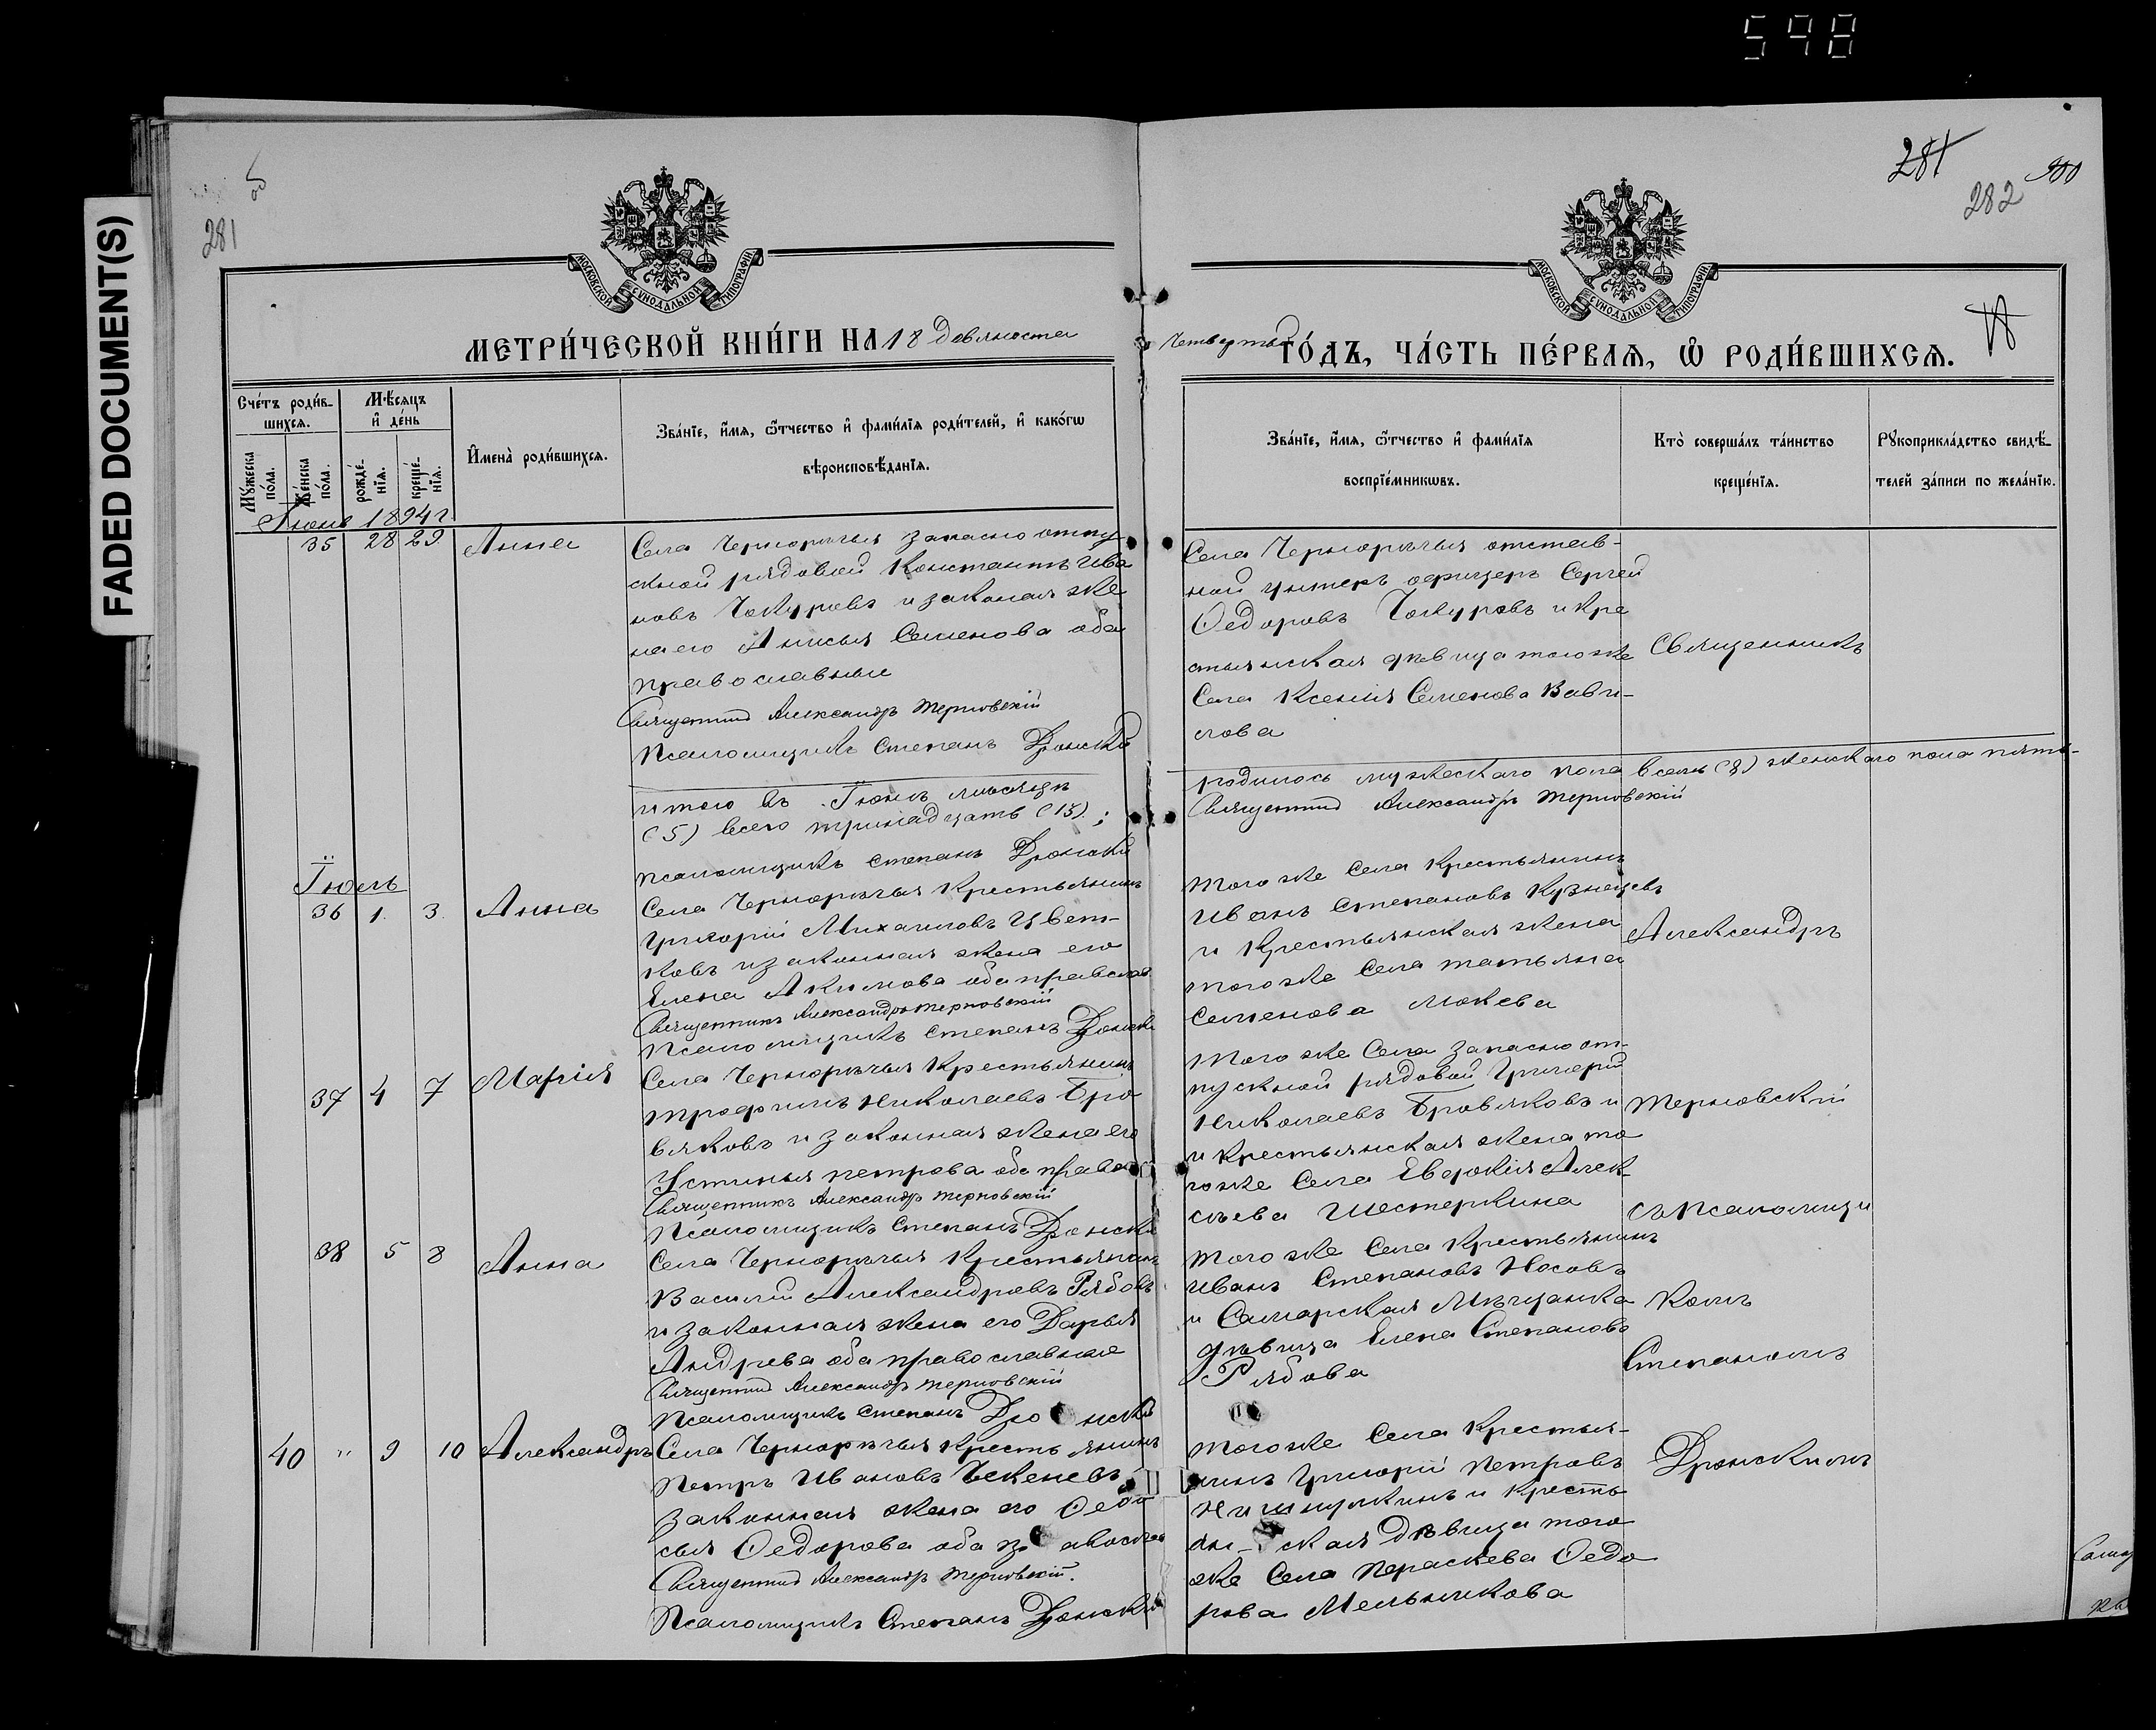 598
FADED DOCUMENT(S)
281
об
281
282
300
МОСКОВСКОЙ СѴНОДАЛЬНОЙ ТИПОГРАФІИ
МОСКОВСКОЙ СѴНОДАЛЬНОЙ ТИПОГРАФІИ
МЕТРИ́ЧЕСКОЙ КНИ́ГИ НА 18 девяносто
четвертый ГО́ДЪ, ЧА́СТЬ ПЕ́РВАЯ, Ѡ РОДИ́ВШИХСЯ.
Сче́тъ роди́в-
шихся.
Мѣ́сяцъ
и де́нь
Му́жеска по́ла.
Же́нска по́ла.
рожде́-
нїя.
креще́-
нїя.
Имена̀ роди́вшихся.
Зва́нїе, и́мя, ѻ́тчество и фами́лїя роди́телей, и како́гѡ
вѣроисповѣ́данїя.
Зва́нїе, и́мя, ѻ́тчество и фами́лїя
воспрїе́мникѡвъ.
Кто̀ соверша́лъ та́инство
креще́нїя.
Рꙋкоприкла́дство свидѣ́-
телей за́писи по жела́нїю.
Іюнь 1894 г
35 28 29 Анна
Села Чернорѣчья запасно отпу
скной рядовой Константъ Ива
новъ Чокуровъ и законая же
на его Анисья Семенова оба
православныи
Священникъ Александръ Терновскій
Псаломщикъ Степанъ Дронскій
Села Чернорѣчья отстав-
ной унтеръ офицеръ Сергей
Ѳедоровъ Чокуровъ и кре
стьянская дѣвица того же
Села Ксенія Семенова Вави-
лова
Священникъ
итого въ Іюнѣ мѣсяцѣ
родилось мужескаго пола восемь (8) женскаго пола пять-
(5) всего тринадцать (13).;
Священникъ Александръ Терновскій
псаломщикъ Степанъ Дронскій
Іюль
36 1. 3. Анна
Села Чернорѣчья Крестьянинъ
Григорій Михаиловъ Цвет-
ковъ и законная жена его
Елена Акимова оба правслав.
Священникъ Александръ Терновскій
Псаломщикъ Степанъ Дронскій
того же Села Крестьянинъ
Иванъ Степановъ Кузнецовъ
и Крестьянская жена
того же Села татьяна
Семенова Мокева
Александръ
37 4 7 Марія
Села Чернорѣчья Крестьянинъ
трофимъ Николаевъ Бро
вяковъ и законная жена его
Устинья петрова оба право
Священникъ Александръ Терновскій
Псаломщикъ Степанъ Дронскій
того же Села запасно от-
пускной рядовой Григорій
Николаевъ Бровяковъ и
и крестьянская жена то
гоже Села Евдокія Алек-
сѣева Шестеркина
Терновскій
съ псаломщи
38 5 8 Анна
Села Чернорѣчья Крестьянинъ
Василій Александровъ Рябовъ
и законная жена его Дарья
Андрева оба православные
Священникъ Александръ Терновскій
Псаломщикъ Степанъ Дронскій
того же Села Крестьянинъ
Иванъ Степановъ Носовъ
и Самарская Мѣщанка
дѣвица Елена Степанова
Рябова
комъ
Степаномъ
40 " 9 10 Александръ
Села Чернорѣчья крестьянинъ
Петръ Ивановъ Чекеневъ
законная жена его Ѳедо
сья Ѳедорова оба православ
Священникъ Александръ Терновскій.
Псаломщикъ Степанъ Дронскій
того же Села Крестья-
нинъ Григорій Петровъ
и Кресть
ян-ская дѣвица того
же Села Пераскева Ѳедо
рова Мельникова
Дронскимъ